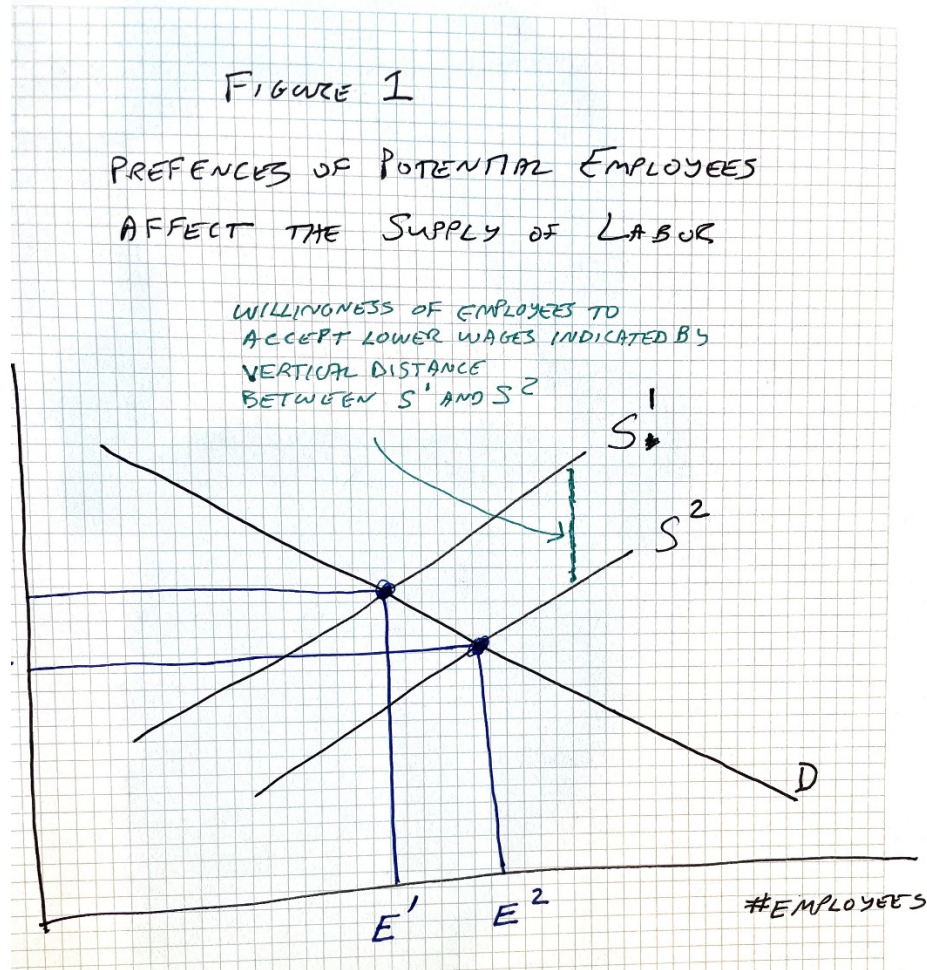 FIGURE 1
PREFENCES OF POTENTIAL EMPLOYEES
AFFECT THE SUPPLY OF LABOR
WILLINGNESS OF EMPLOYEES TO
ACCEPT LOWER WAGES INDICATED BY
VERTICAL DISTANCE
BETWEEN S¹ AND S²
S¹
S²
D
E¹
E²
#EMPLOYEES